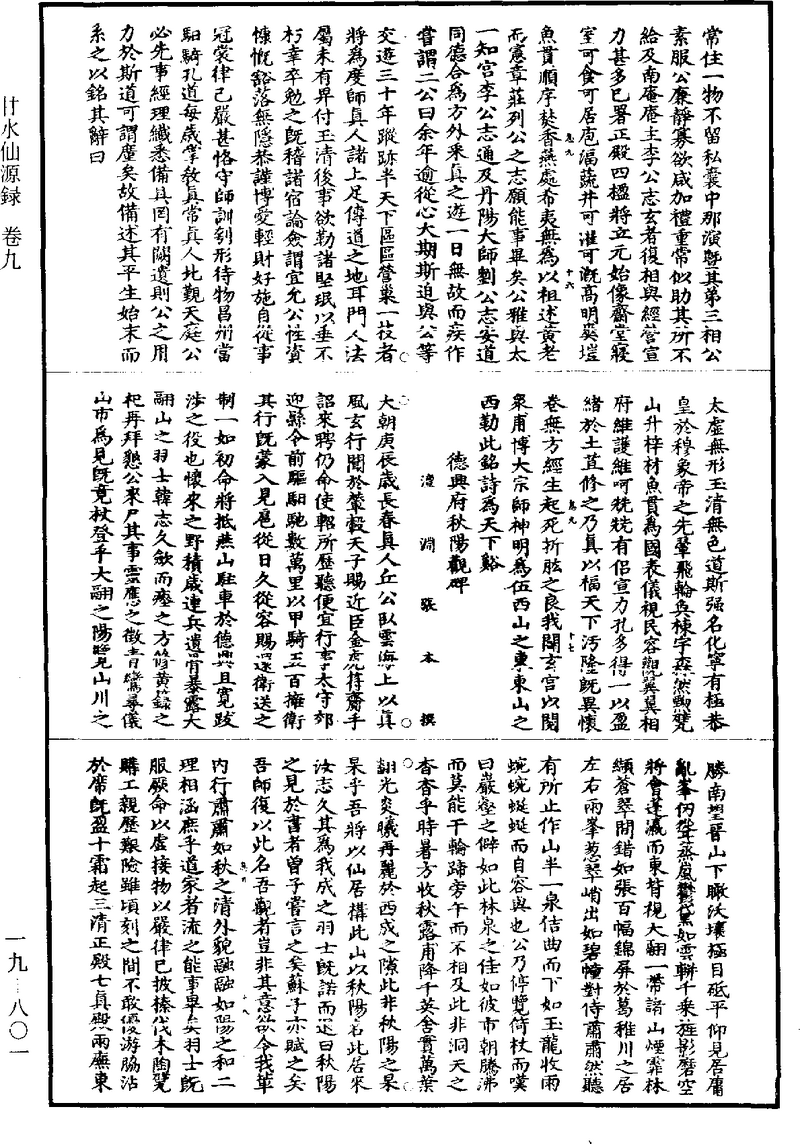 常住一物不留私囊中那演旣其第三相公
素服公廉靜寡欲咸加禮重常似助其所不
給及南庵庵主李公志玄者復相與經營宣
力甚多已署正殿四楹將立元始像齋堂寢
室可食可居庖湢蔬井可灌可漑高明爽塏
魚貫順序焚香燕處希夷無爲以祖述黃老
而憲章莊列公之志願能事畢矣公雅與太
一知宮李公志通及丹陽大師劉公志安道
同德合爲方外采真之遊一日無故而疾作
嘗謂二公曰余年逾從心大期斯迫與公等
交遊三十年蹤跡半天下區區營巢一枝者
將爲度師真人諸上足傳道之地耳門人法
屬未有昇付玉清後事欲勒諸堅珉以垂不
朽幸卒勉之旣稽諸宿論僉謂宜允公性資
慷慨豁落無隱恭謹博愛輕財好施自從事
冠裳律己嚴甚恪守師訓刳形待物昌州當
馹騎孔道每歲掌教真常真人北覲天庭公
必先事經理纖悉備具罔有闕遺則公之用
力於斯道可謂塵矣故備述其平生始末而
系之以銘其辭曰
太虛無形玉清無色道斯强名化寧有極恭
皇於穆象帝之先翬飛輪奐棟宇森然勉甓
山升梓材魚貫爲國表儀視民容觀翼翼相
府維護維呵兟兟有侶宣力孔多得一以盈
緒於土苴修之乃真以福天下污隆旣異懷
卷無方經生起死折肱之良我閟玄宮以閱
衆甫博大宗師神明爲伍西山之東東山之
西勒此銘詩爲天下谿
德興府秋陽觀碑
湻淵張本撰
大朝庚辰歲長春真人丘公臥雲海上以真
風玄行聞於輦轂天子賜近臣金虎符齎手
詔來聘仍命使軺所歷聽便宜行事太守郊
迎縣令前驅馹馳數萬里以甲騎五百擁衛
其行旣蒙入見扈從日久從容賜還衛送之
制一如初命將抵燕山駐車於德興且寬跋
涉之役也懷來之野積歲連兵遺胔暴露大
翮山之羽士韓志久斂而瘞之方修黃籙之
祀再拜懇公來尸其事靈應之徵青鸞專儀
山市爲見旣竟杖登乎大翮之陽覽山川之
勝南望晉山下瞰沃壤極目砥平仰見居庸
亂峯仞聳蒸嵐鬱黛如雲輧千乘旌影磨空
將會蓬瀛而東背視大翮一帶諸山煙霏林
纈蒼翠間錯如張百幅錦屏於葛稚川之居
左右兩峯葱翠峭出如碧幢對侍肅肅然聽
有所止作山半一泉佶曲而下如玉龍收雨
蜿蜿蜒蜒而自容與也公乃停覽倚杖而嘆
曰巖壑之僻如此林泉之佳如彼市朝騰沸
而莫能干輪蹄旁午而不相及此非洞天之
杳杳乎時暑方收秋露甫降千英舍實萬葉
翻光炎曦再麗於西成之隙此非秋陽之杲
杲乎吾將以仙居構此山以秋陽名此居來
汝志久其爲我成之羽士旣諾而還曰秋陽
之見於書者曾子嘗言之矣蘇子亦賦之矣
吾師復以此名吾觀者豈非其意欲令我輩
內行肅肅如秋之清外貌融融如陽之和二
理相涵庶乎道家者流之能事畢矣羽士旣
服厥命以虛接物以嚴律己披榛伐木陶甓
購工親歷艱險雖頃刻之間不敢優游脇沾
於席旣盈十霜起三清正殿七真殿兩廡東
卷九
十六
卷九
十七
十八
甘水仙源録 卷九
一九—八〇一